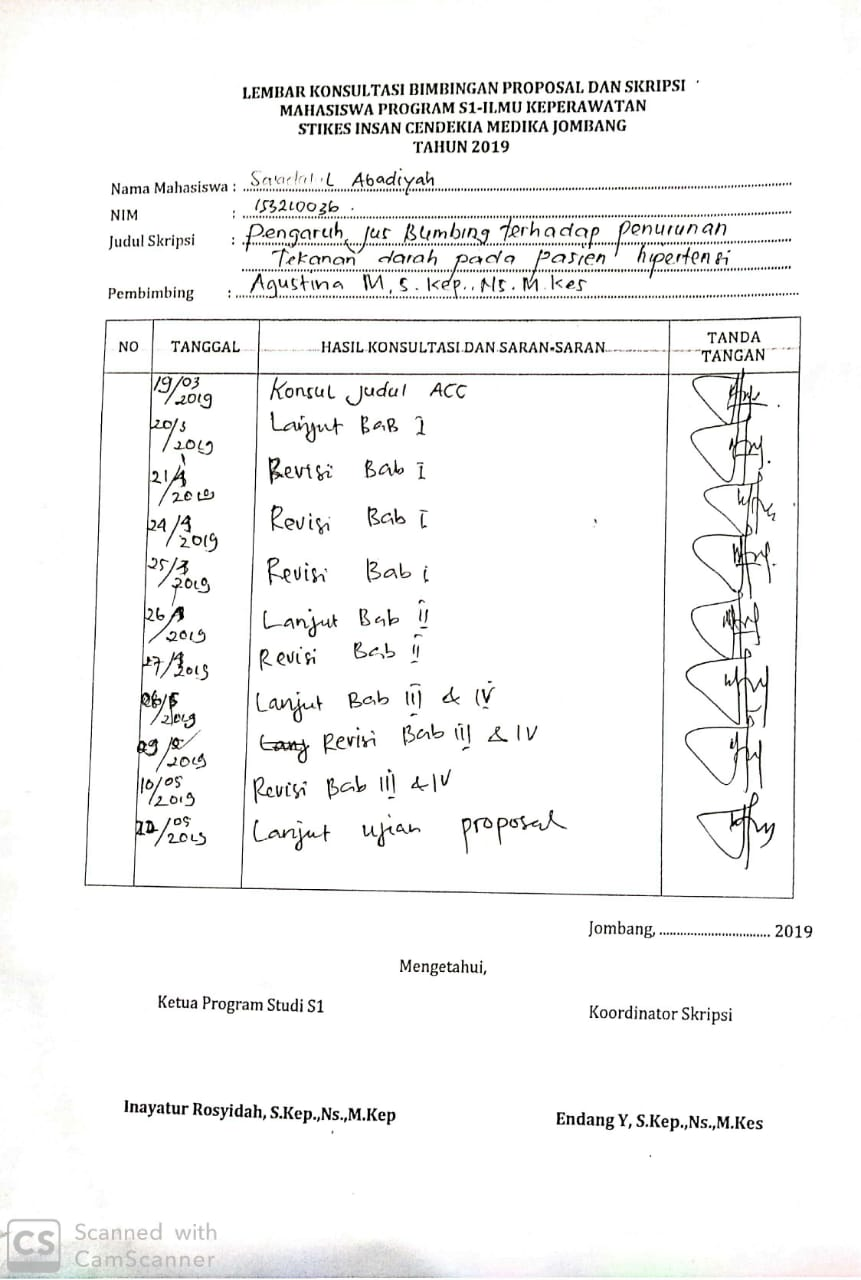 LEMBAR KONSULTASI BIMBINGAN PROPOSAL DAN SKRIPSI
MAHASISWA PROGRAM S1-ILMU KEPERAWATAN
STIKES INSAN CENDEKIA MEDIKA JOMBANG
TAHUN 2019
Nama Mahasiswa : Abadiyah
NIM : 153210036
Judul Skripsi : Pengaruh jus Blimbing terhadap penurunan
Tekanan darah pada pasien hipertensi
Pembimbing : Agustina M, S. Kep., Ns. M. Kes
NO TANGGAL HASIL KONSULTASI DAN SARAN-SARAN TANDA TANGAN
19/03 2019 Konsul Judul ACC
20/3 2019 Lanjut BAB I
2019 Revisi Bab I
2019 Revisi Bab I
2019 Revisi Bab I
2019 Lanjut Bab II
2019 Revisi Bab II
2019 Lanjut Bab III & IV
2019 Revisi Bab III & IV
10/05 2019 Revisi Bab III & IV
/05 2019 Lanjut ujian proposal
Jombang, .................................. 2019
Mengetahui,
Ketua Program Studi S1 Koordinator Skripsi
Inayatur Rosyidah, S.Kep.,Ns.,M.Kep Endang Y, S.Kep.,Ns.,M.Kes
CS Scanned with
CamScanner